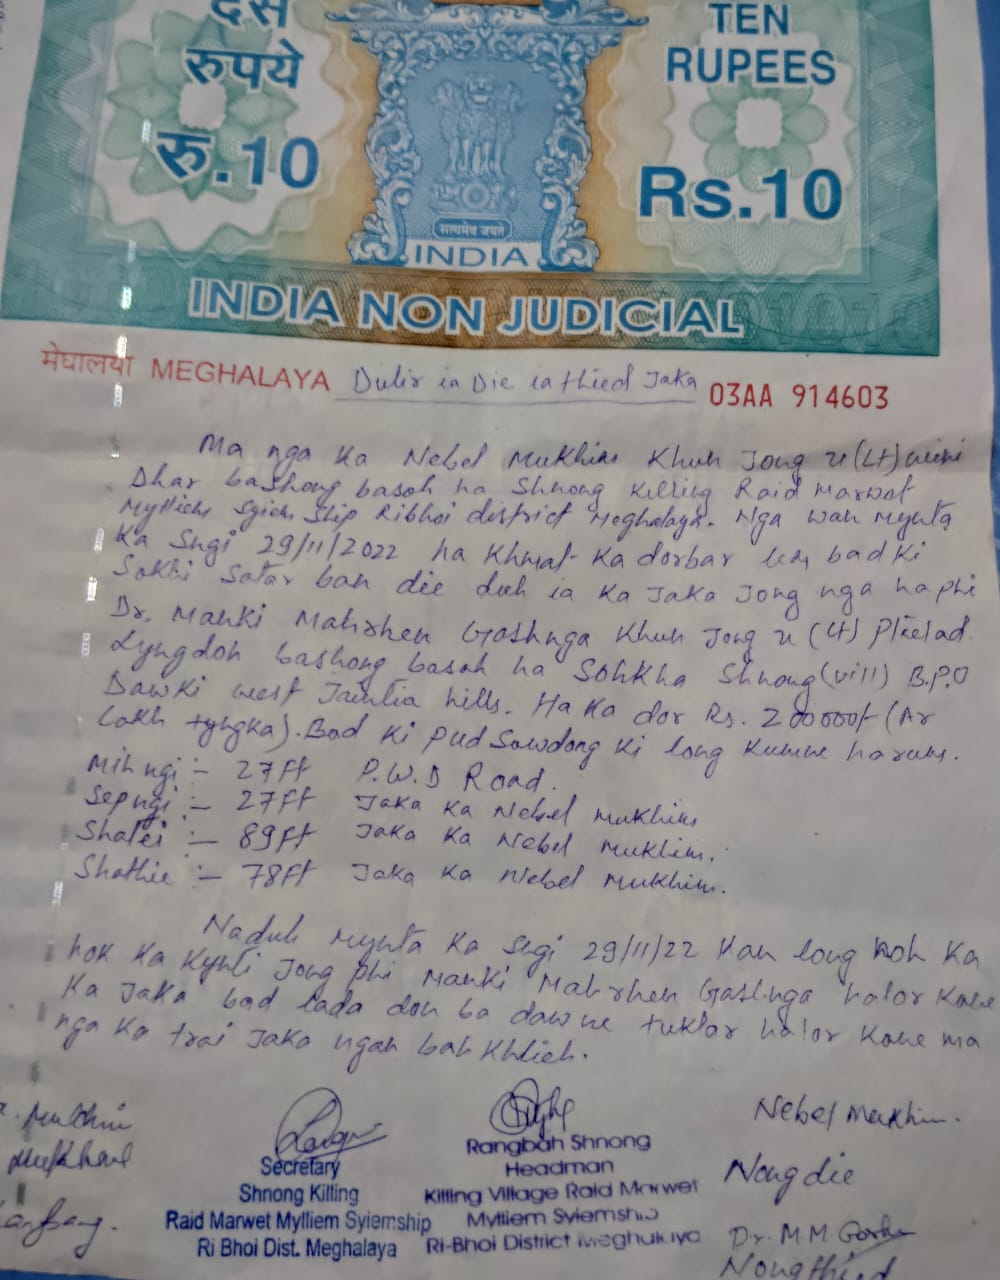 दस
रुपये
रु.10
TEN
RUPEES
Rs.10
सत्यमेव जयते
INDIA
INDIA NON JUDICIAL
मेघालय MEGHALAYA Dulir ia Die ia thied Jaka 03AA 914603
Ma nga Ka Nebel Mukhim Khun Jong u (Lt)
Dhar bashong basah ha Shnong Killing Raid Marwet
Mylliem Syiem Ship Ribhoi district Meghalaya. Nga wan mynta
Ka Sngi 29/11/2022 ha Khmat Ka dorbar bad ki
Sakhi Satar ban die duh ia Ka Jaka Jong nga ha phi
Dr. Manki Mahrhen Gashnga Khun Jong u (Lt)
Lyngdoh bashong basah ha Sohkha Shnong (vill) B.P.O
Dawki West Jaintia hills. Ha Ka dor Rs. 200000/- (Ar
Lakh tyngka). Bad Ki pud Sawdong Ki long Kumne harum.
Mihngi :- 27ft P.W.D Road.
Sepngi :- 27ft Jaka Ka Nebel Mukhim
Shatei :- 89ft Jaka Ka Nebel Mukhim.
Shathie :- 78ft Jaka Ka Nebel Mukhim.
Naduh mynta Ka Sngi 29/11/22 Kan long noh Ka
hok Ka Kynti Jong phi Manki Mahrhen Gashnga halor Kane
Ka Jaka bad lada don ba dawne tuklar halor Kane ma
nga Ka trai Jaka ngan bah Khlieh.
Nebel Mukhim.
Nongdie
Secretary
Shnong Killing
Raid Marwet Mylliem Syiemship
Ri Bhoi Dist. Meghalaya
Rangbah Shnong
Headman
Killing Village Raid Marwet
Mylliem Syiemship
Ri-Bhoi District Meghalaya
Dr. M.M.
Nongthied